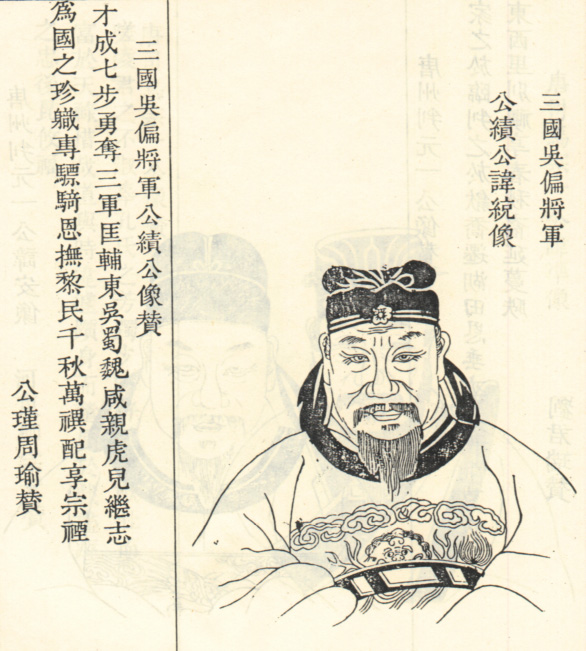 三國吳偏將軍
公績公諱統像
三國吳偏將軍公績公像贊
才成七步勇奪三軍匡輔東吳蜀魏咸親虎兒繼志
為國之珍職專驃騎恩撫黎民千秋萬禩配享宗禋
公瑾周瑜贊